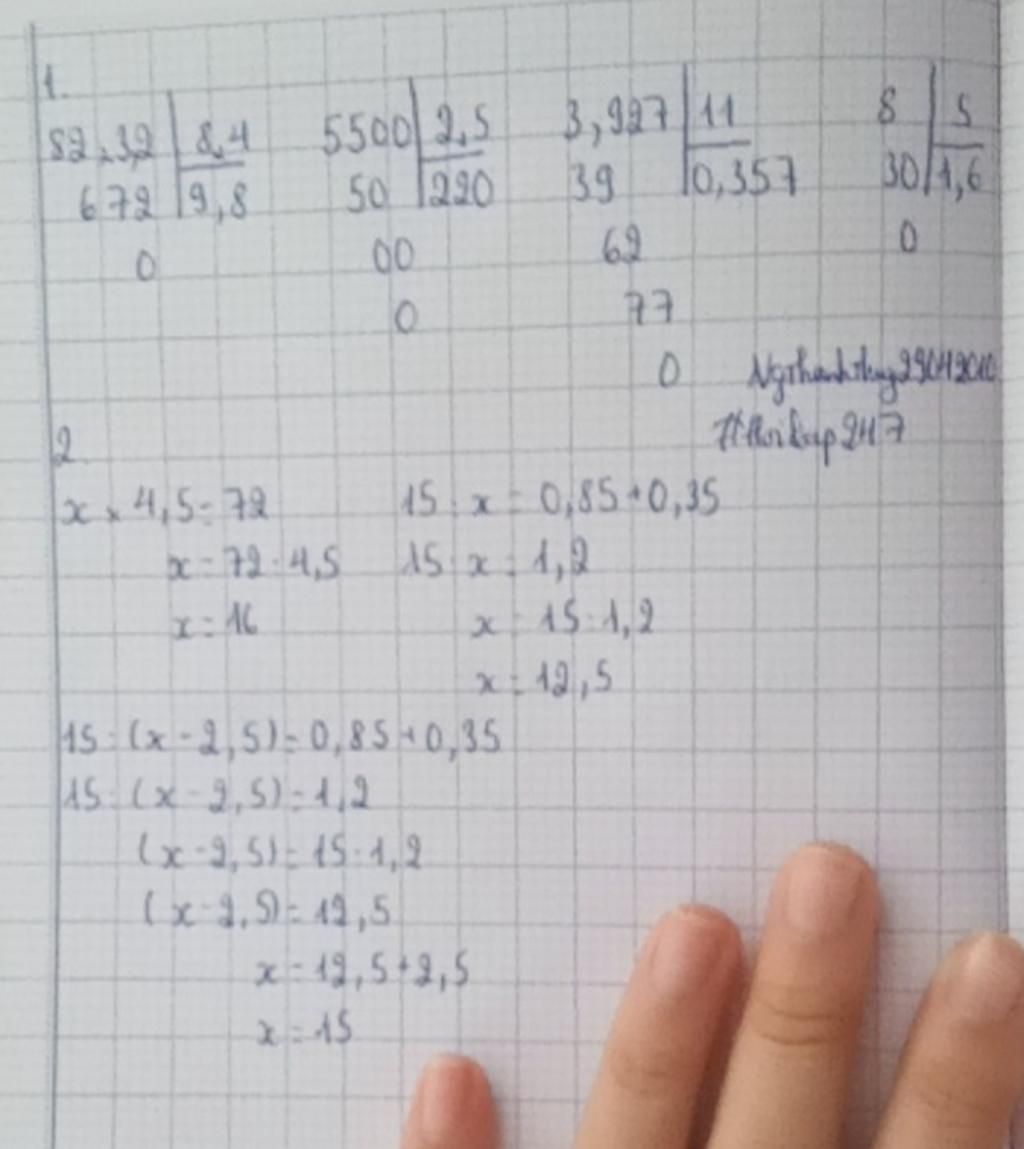 1.
82,32 | 8,4   5500 | 2,5   3,927 | 11   8 | 5
672 | 9,8   50 | 220   39 | 0,357   30 | 1,6
0   00   62   0
0   77
0
2
x × 4,5 = 72   15 : x = 0,85 + 0,35
x = 72 : 4,5   15 : x = 1,2
x = 16   x = 15 : 1,2
x = 12,5
15 : (x - 2,5) = 0,85 + 0,35
15 : (x - 2,5) = 1,2
(x - 2,5) = 15 : 1,2
(x - 2,5) = 12,5
x = 12,5 + 2,5
x = 15